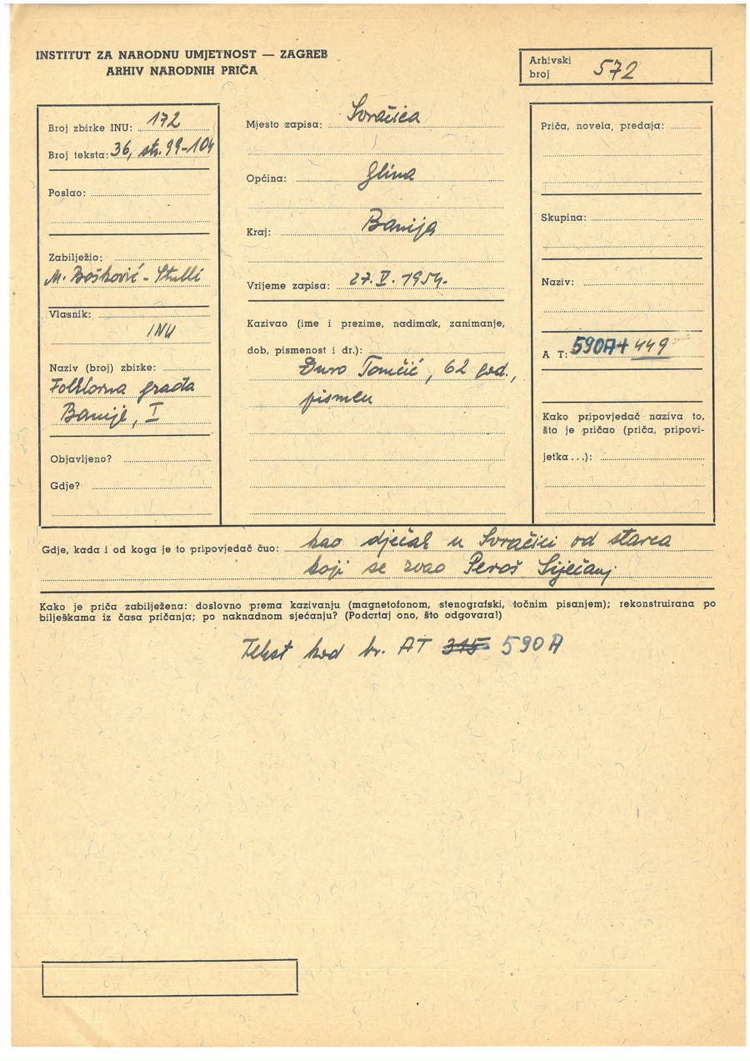 INSTITUT ZA NARODNU UMJETNOST — ZAGREB
ARHIV NARODNIH PRIČA
Arhivski
broj 572
Broj zbirke INU: 172
Broj teksta: 36, str. 99-104
Poslao:
Zabilježio:
M. Bošković-Stulli
Vlasnik:
INU
Naziv (broj) zbirke:
Folklorna građa
Banije, I
Objavljeno?
Gdje?
Mjesto zapisa: Svračica
Općina: Glina
Kraj: Banija
Vrijeme zapisa: 27. V. 1954.
Kazivao (ime i prezime, nadimak, zanimanje,
dob, pismenost i dr.):
Đuro Tomčić, 62 god.,
pismen
Priča, novela, predaja:
Skupina:
Naziv:
A T: 590A + 449
Kako pripovjedač naziva to,
što je pričao (priča, pripovi-
jetka...):
Gdje, kada i od koga je to pripovjedač čuo: kao dječak u Svračici od starca
koji se zvao Peroš Siječanj
Kako je priča zabilježena: doslovno prema kazivanju (magnetofonom, stenografski, točnim pisanjem); rekonstruirana po
bilješkama iz časa pričanja; po naknadnom sjećanju? (Podcrtaj ono, što odgovara!)
Tekst kod br. AT 315 590A